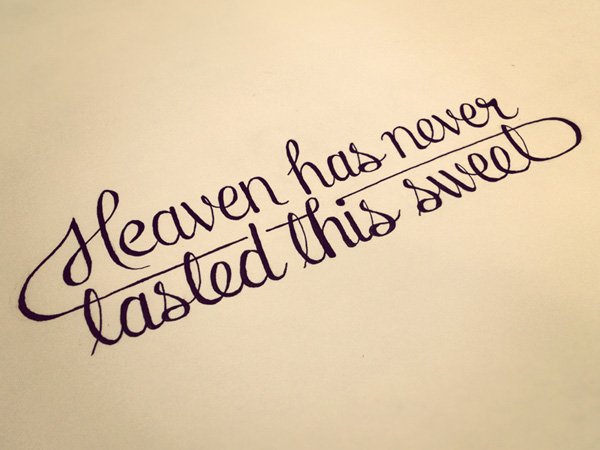 Heaven has never
tasted this sweet